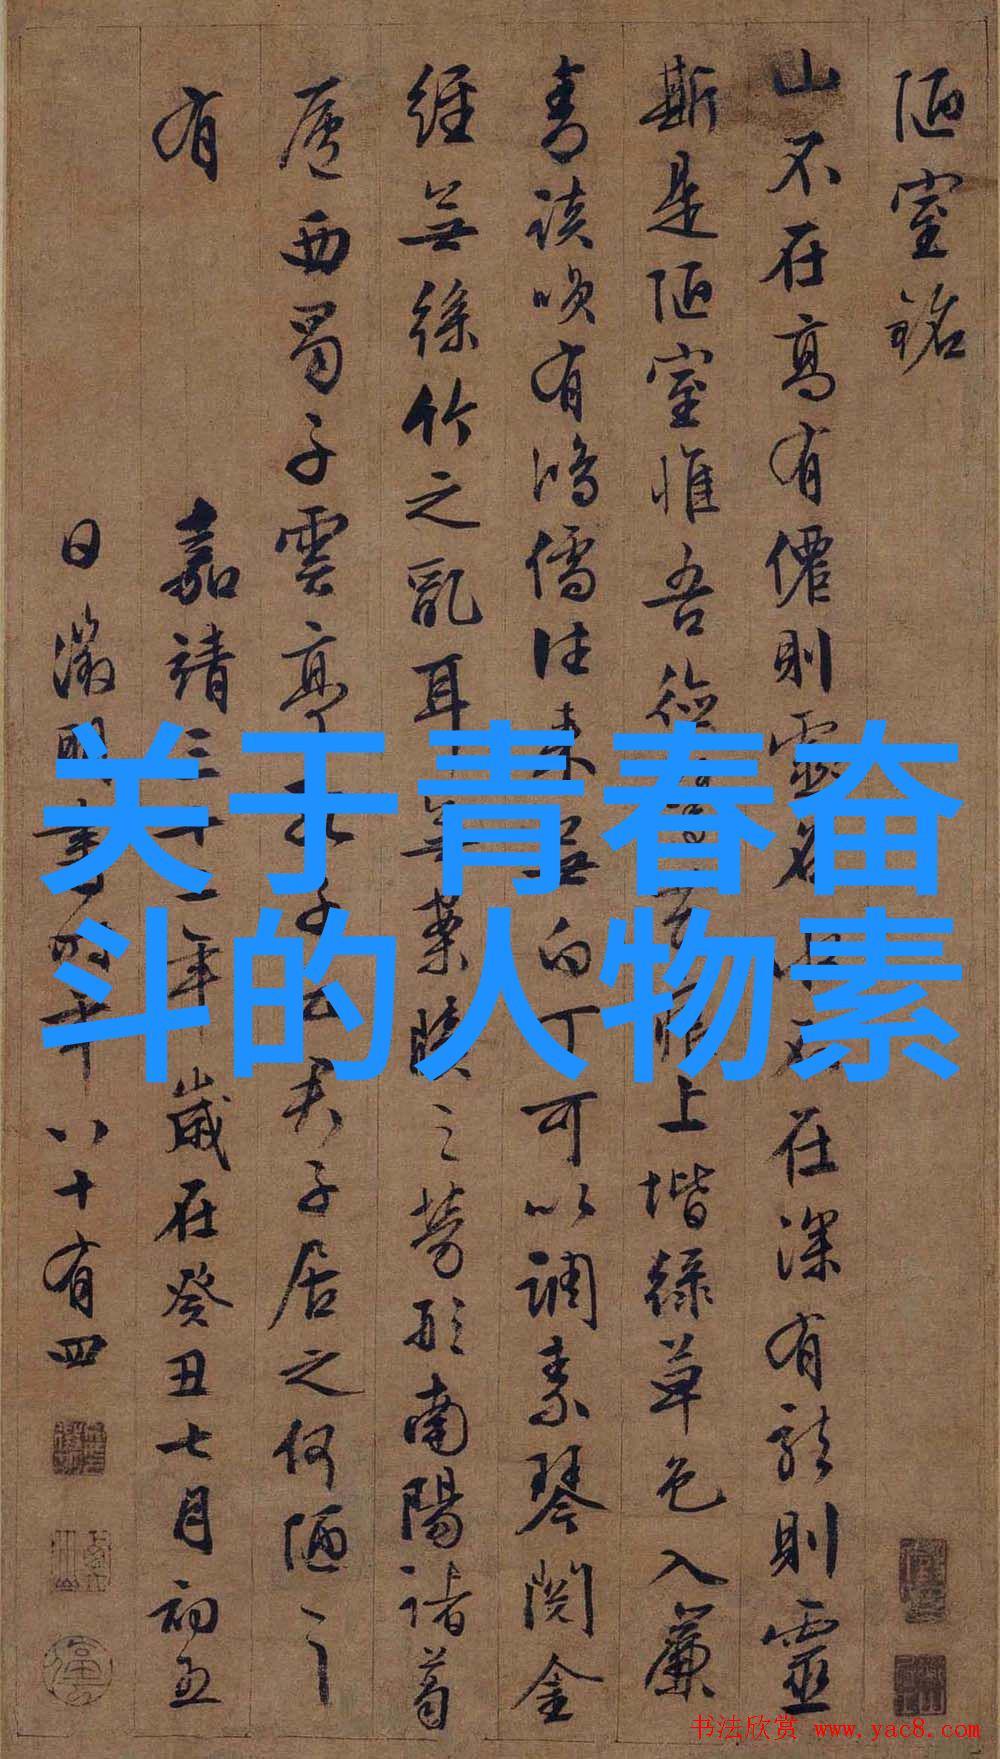 陋室銘
山不在高有僊則靈名水不在深有龍則靈
斯是陋室惟吾德馨苔痕上堦綠草色入簾
青談咲有鴻儒往來無白丁可以調素琴閱金
經無絲竹之亂耳無案牘之勞形南陽諸葛
廬西蜀子雲亭孔子云君子居之何陋之
有
嘉靖三十二年歲在癸丑七月初五
日徵明書時年八十有四
关于青春奋
斗的人物素
书法欣赏 www.yac8.com